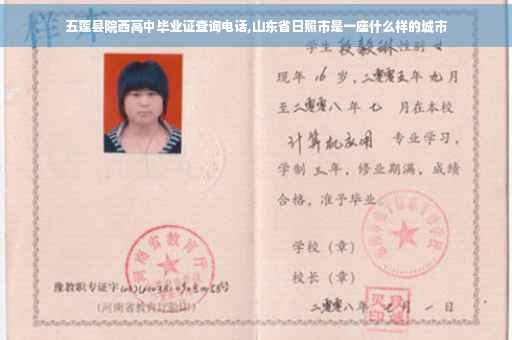 五莲县院西高中毕业证查询电话,山东省日照市是一座什么样的城市
样本
学生 段毅琳 性别 女
现年 16 岁,二零零五年 九月
至二零零八年 七 月在本校
计算机应用 专业学习,
学制 三 年,修业期满,成绩
合格,准予毕业
学校(章)
校长(章)
二零零八年 月 一 日
河南省教育厅
豫教职专证字
(河南省教育厅验印)